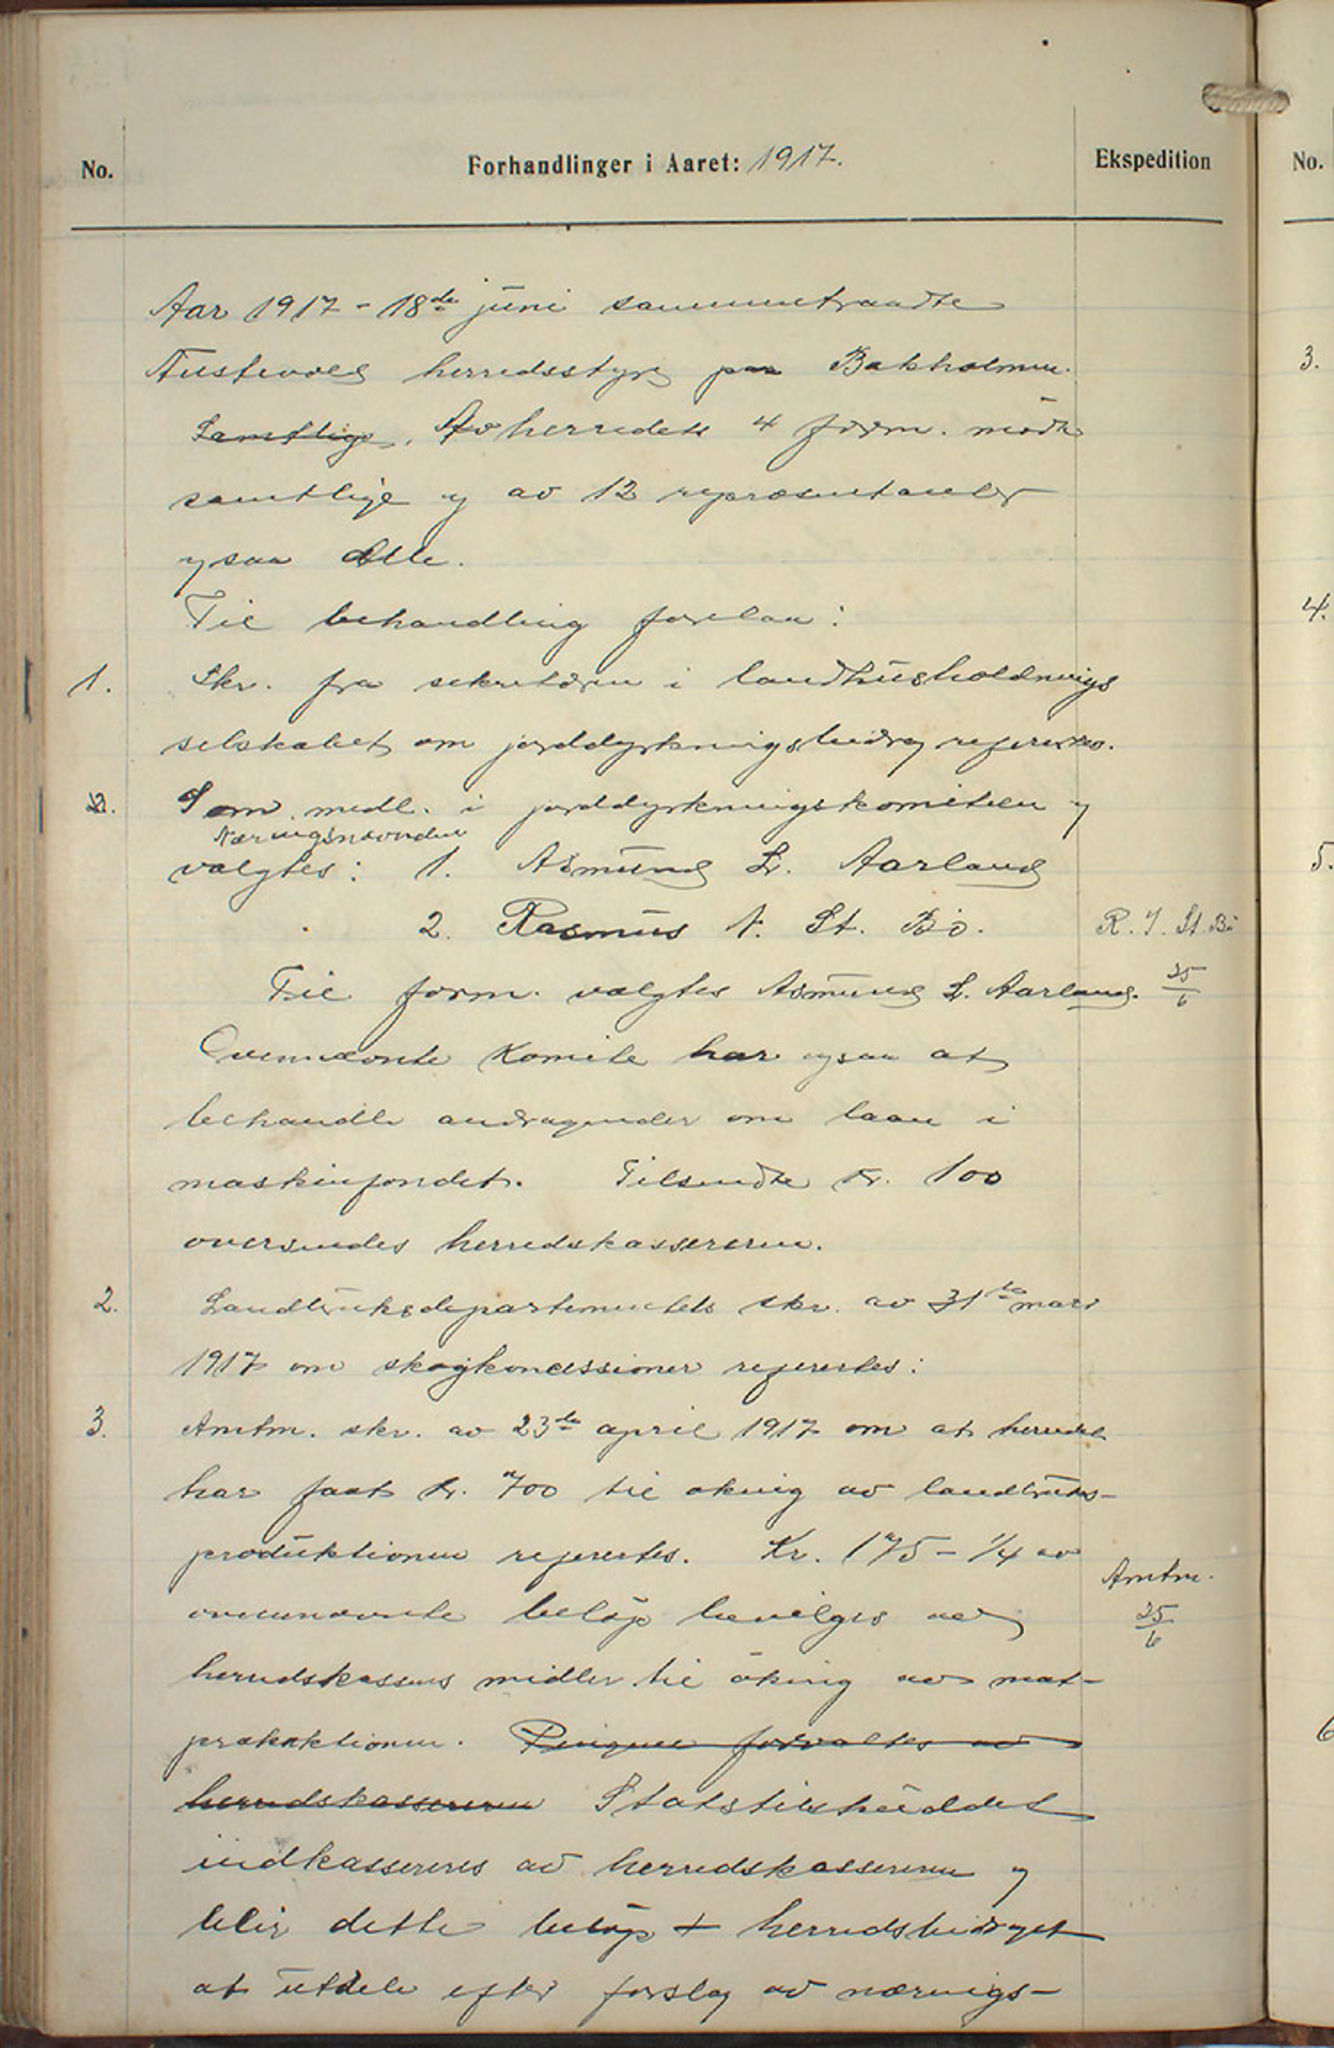 No.
Forhandlinger i Aaret: 1917.
Ekspedition
No.
Aar 1917 - 18de juni sammentraadte
Austevold herredsstyre paa Bakholmen.
Samtlige. Av herredets 4 form. mødte
samtlige og av 12 repræsentanter
ogsaa alle.
Til behandling forelaa:
1. Skr. fra sekretæren i landhusholdnings
selskabet om jorddyrkningsbidrag refereres.
2. Som medl. i jorddyrkningskomiteen og
Næringsnævnden
valgtes: 1. Asmund L. Aarland
2. Rasmus N. St. Bö.
R. J. St. Bö
Til form. valgtes Asmund L. Aarland.
25/6
Ovennævnte Komite har ogsaa at
behandle andragender om laan i
maskinfondet. Tilsendte kr. 100
oversendes herredskassereren.
2. Landbruksdepartementets skr. av 31te mars
1917 om skogkoncessioner referertes:
3. Amtm. skr. av 23de april 1917 om at herredet
har faat kr. 700 til økning av landbruks-
produktionen referertes. Kr. 175 - 1/4 av
Amtm.
ovennævnte beløp bevilges av
25/6
herredskassens midler til øking av mat-
produktionen. Pengene forvaltes av
herredskassereren Statstilskuddet
indkasseres av herredskassereren og
blir dette beløp + herredsbidraget
at utdele efter forslag av nærings-
3.
4.
5.
6